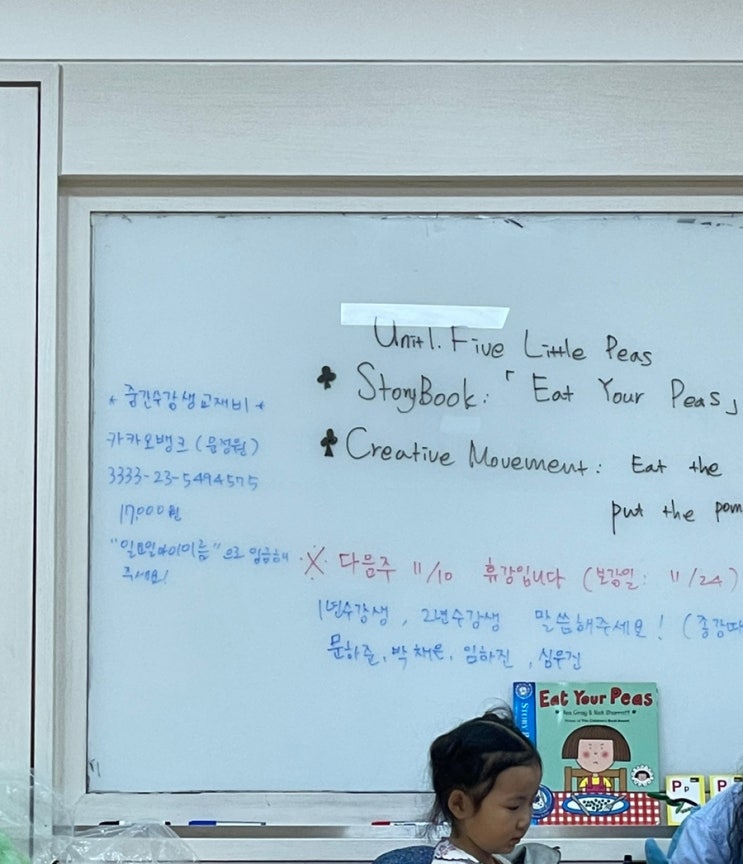 Unit1. Five Little Peas
♣ StoryBook: 「Eat Your Peas」
♣ Creative Movement: Eat the
put the pom
* 중간수강생교재비 *
카카오뱅크 (문정원)
3333-23-5494575
17,000원
"일요일아이이름"으로 입금해
주세요!
※ 다음주 11/10 휴강입니다 (보강일: 11/24)
1년수강생, 2년수강생 말씀해주세요! (종강
문하준, 박채은, 임하진, 심우건
Eat Your Peas
Kes Gray & Nick Sharratt
STORY
Pp
P